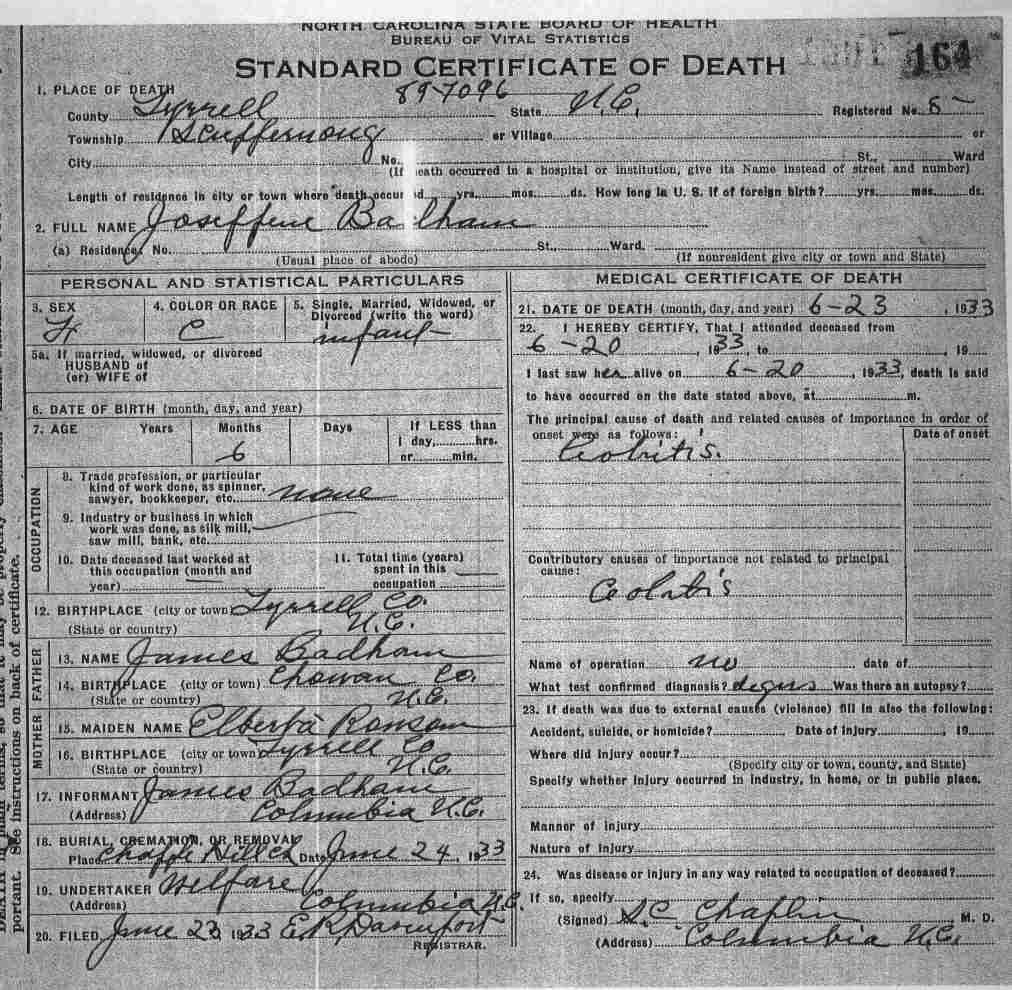 NORTH CAROLINA STATE BOARD OF HEALTH
BUREAU OF VITAL STATISTICS
STANDARD CERTIFICATE OF DEATH
164
1. PLACE OF DEATH 897096
County Tyrrell State N.C. Registered No. 5
Township Scuffernong or Village or
City No. St., Ward
(If death occurred in a hospital or institution, give its Name instead of street and number)
Length of residence in city or town where death occurred yrs. mos. ds. How long in U. S. if of foreign birth? yrs. mos. ds.
2. FULL NAME Joseffene Badham
(a) Residence. No. St., Ward.
(Usual place of abode) (If nonresident give city or town and State)
PERSONAL AND STATISTICAL PARTICULARS
3. SEX 4. COLOR OR RACE 5. Single, Married, Widowed, or
Divorced (write the word)
F C infant
5a. If married, widowed, or divorced
HUSBAND of
(or) WIFE of
6. DATE OF BIRTH (month, day, and year)
7. AGE Years Months Days If LESS than
1 day, hrs.
6 or min.
OCCUPATION
8. Trade profession, or particular
kind of work done, as spinner,
sawyer, bookkeeper, etc. none
9. Industry or business in which
work was done, as silk mill,
saw mill, bank, etc.
10. Date deceased last worked at 11. Total time (years)
this occupation (month and spent in this
year) occupation
12. BIRTHPLACE (city or town) Tyrrell Co.
(State or country) N.C.
FATHER
13. NAME James Badham
14. BIRTHPLACE (city or town) Chowan Co.
(State or country) N.C.
MOTHER
15. MAIDEN NAME Elberta Ransom
16. BIRTHPLACE (city or town) Tyrrell Co
(State or country) N.C.
17. INFORMANT James Badham
(Address) Columbia N.C.
18. BURIAL, CREMATION, OR REMOVAL
Place Chaple Hill Ch Date June 24, 1933
19. UNDERTAKER Welfare
(Address) Columbia N.C.
20. FILED June 23 1933 E.R. Davenport
REGISTRAR.
MEDICAL CERTIFICATE OF DEATH
21. DATE OF DEATH (month, day, and year) 6-23, 1933
22. I HEREBY CERTIFY, That I attended deceased from
6-20, 1933, to , 19
I last saw her alive on 6-20, 1933, death is said
to have occurred on the date stated above, at m.
The principal cause of death and related causes of importance in order of
onset were as follows: Date of onset
Colitis.
Contributory causes of importance not related to principal
cause:
Colitis
Name of operation no date of
What test confirmed diagnosis? Was there an autopsy?
23. If death was due to external causes (violence) fill in also the following:
Accident, suicide, or homicide? Date of injury , 19
Where did injury occur?
(Specify city or town, county, and State)
Specify whether injury occurred in industry, in home, or in public place.
Manner of injury
Nature of injury
24. Was disease or injury in any way related to occupation of deceased?
If so, specify
(Signed) S.C. Chaplin M. D.
(Address) Columbia N.C.
portant. See instructions on back of certificate.